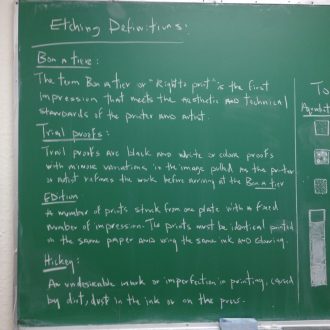 Etching Definitions:
Bon a tier:
The term Bon a tier or "Right to print" is the first
impression that meets the aesthetic and technical
standards of the printer and artist.
Trial proofs:
Trail proofs are black and white or color proofs
with minor variations in the image pulled as the printer
or artist refines the work before arriving at the Bon a tier
EDition
A number of prints struck from one plate with a fixed
number of impression. The prints must be identical printed
on the same paper and using the same ink and coloring.
Hickey:
An undesirable mark or imperfection in printing, caused
by dirt, dust in the ink or on the press.
To
Aquatint